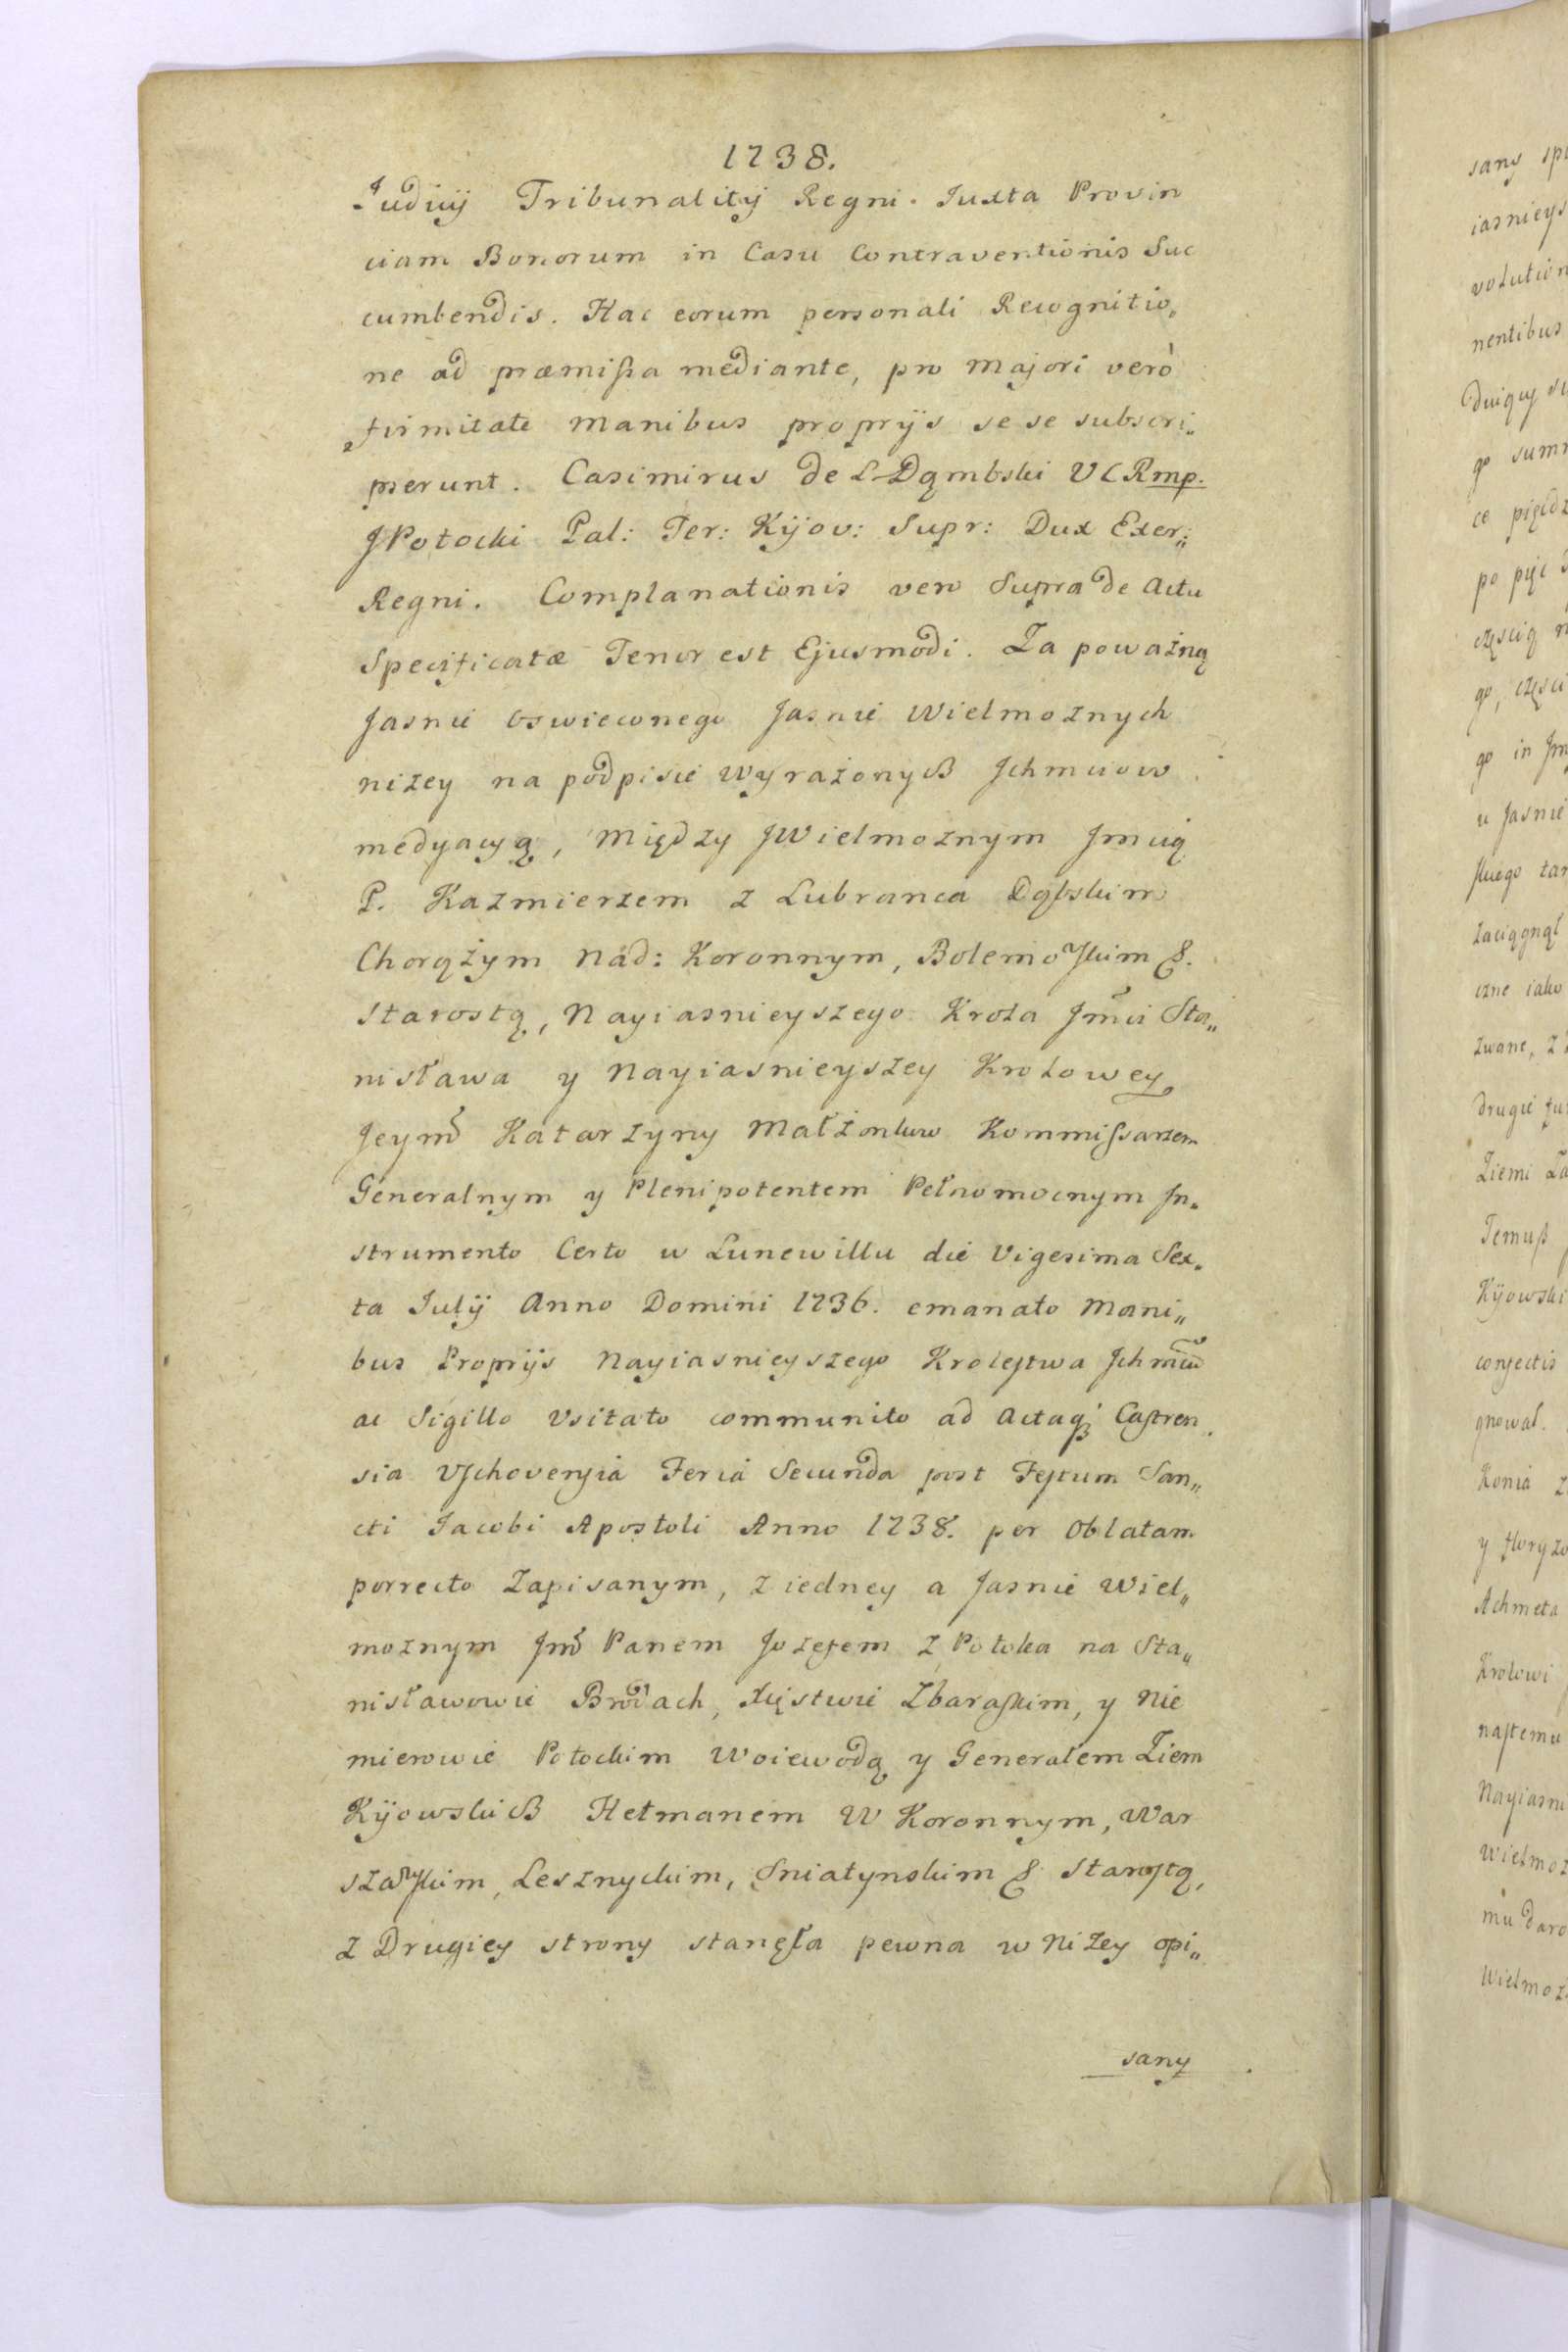 1738.
Judicij Tribunalitij Regni. Juxta Provin
ciam Bonorum in Casu Contraventionis Suc
cumbendis. Hac eorum personali Recognitio„
ne ad præmissa mediante, pro majori verò
firmitate manibus proprijs se se subscri„
pserunt. Casimirus de L Dąmbski VCRmp.
JPotocki Pal: Ter: Kijov: Supr: Dux Exer:
Regni. Complanationis vero Supra de Actu
Specificatæ Tenor est Ejusmodi. Za poważną
Jasnie Oswieconego Jasnie Wielmoznych
nizey na podpisie wyrażonych Jchmciow
medyacyą, między JWielmoznym Jmcią
P. Kazmierzem z Lubranca Dąbskim
Chorążym Nád: Koronnym, Bolemowskim &.
Starostą, Nayiasnieyszego Krola Jmci Sta„
nisława y Nayiasnieyszey Krolowey
Jeymć Katarzyny Małżonkow Kommissarzem
Generalnym y Plenipotentem Pełnomocnym Jn„
strumento Certo w Lunewillu die Vigesima Sex„
ta Julij Anno Domini 1736. emanato Mani„
bus Proprijs Nayiasnieyszego Krolestwa Jchmciow
ac Sigillo Vsitato communito ad Actaq; Castren
sia Vschovensia Feria Secunda post Festum San„
cti Jacobi Apostoli Anno 1738. per Oblatam
porrecto Zapisanym, z iedney a Jasnie Wiel„
moznym Jmć Panem Jozefem z Potoka na Sta„
nisławowie Brodach, Xięstwie Zbaraskim, y Nie
mierowie Potockim Woiewodą y Generałem Ziem
Kijowskich Hetmanem W Koronnym, War
szawskim, Lesznyckim, Sniatynskim & Starostą,
z Drugiey strony stanęła pewna w Niżey opi„
sany
sany
iasnieys
volution
nentibus
go sum
ce pięćdz
po pięć
częścią
go, części
go in Jm
u Jasnie
zaciągnął
czne iako
zwane, z
drugie
Ziemi Za
Temuß
Kijowski
confectis
gnował.
Konia
Achmeta
Krolowi
nastemu
Nayiasni
Wielmoz
mu daro
Wielmoz